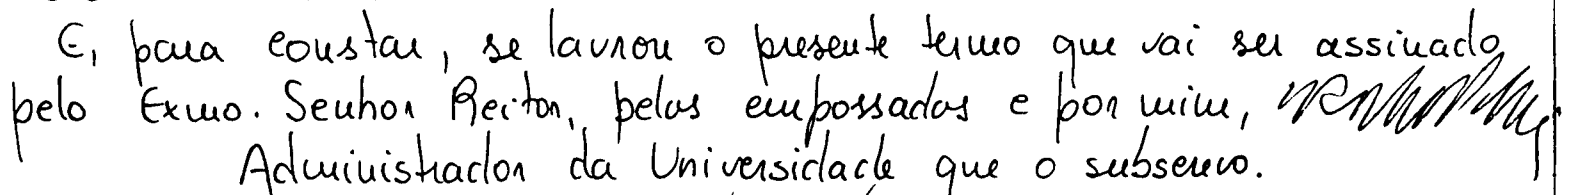 E, para constar, se lavrou o presente termo que vai ser assinado
pelo Exmo. Senhor Reitor, pelos empossados e por mim,
Administrador da Universidade que o subscrevo.